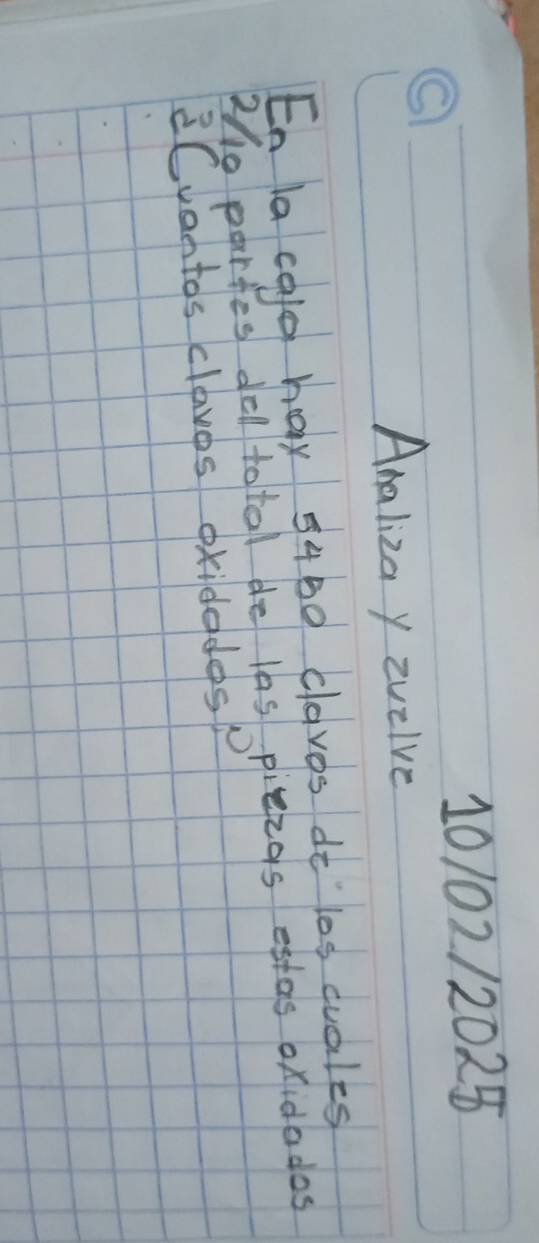 10/02/2025
C
Analiza y zuelve
En la caja hay 5480 clavos de los cuales
2/10 partes del total de las piezas estas oxidados
¿Cuantos clavos oxidados?